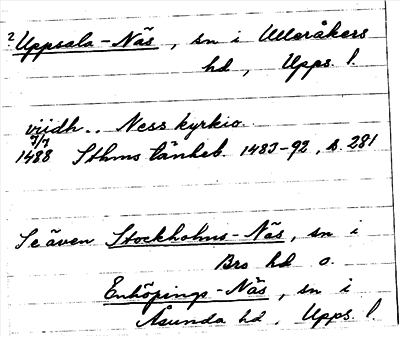 ? Uppsala-Näs, sn i Ulleråkers
hd, Upps. l.
viidh.. Ness kyrkio.
7/7
1488 Sthms tänkeb. 1483-92, s. 281
Se även Stockholms-Näs, sn i
Bro hd o.
Enköpings-Näs, sn i
Åsunda hd, Upps. l.